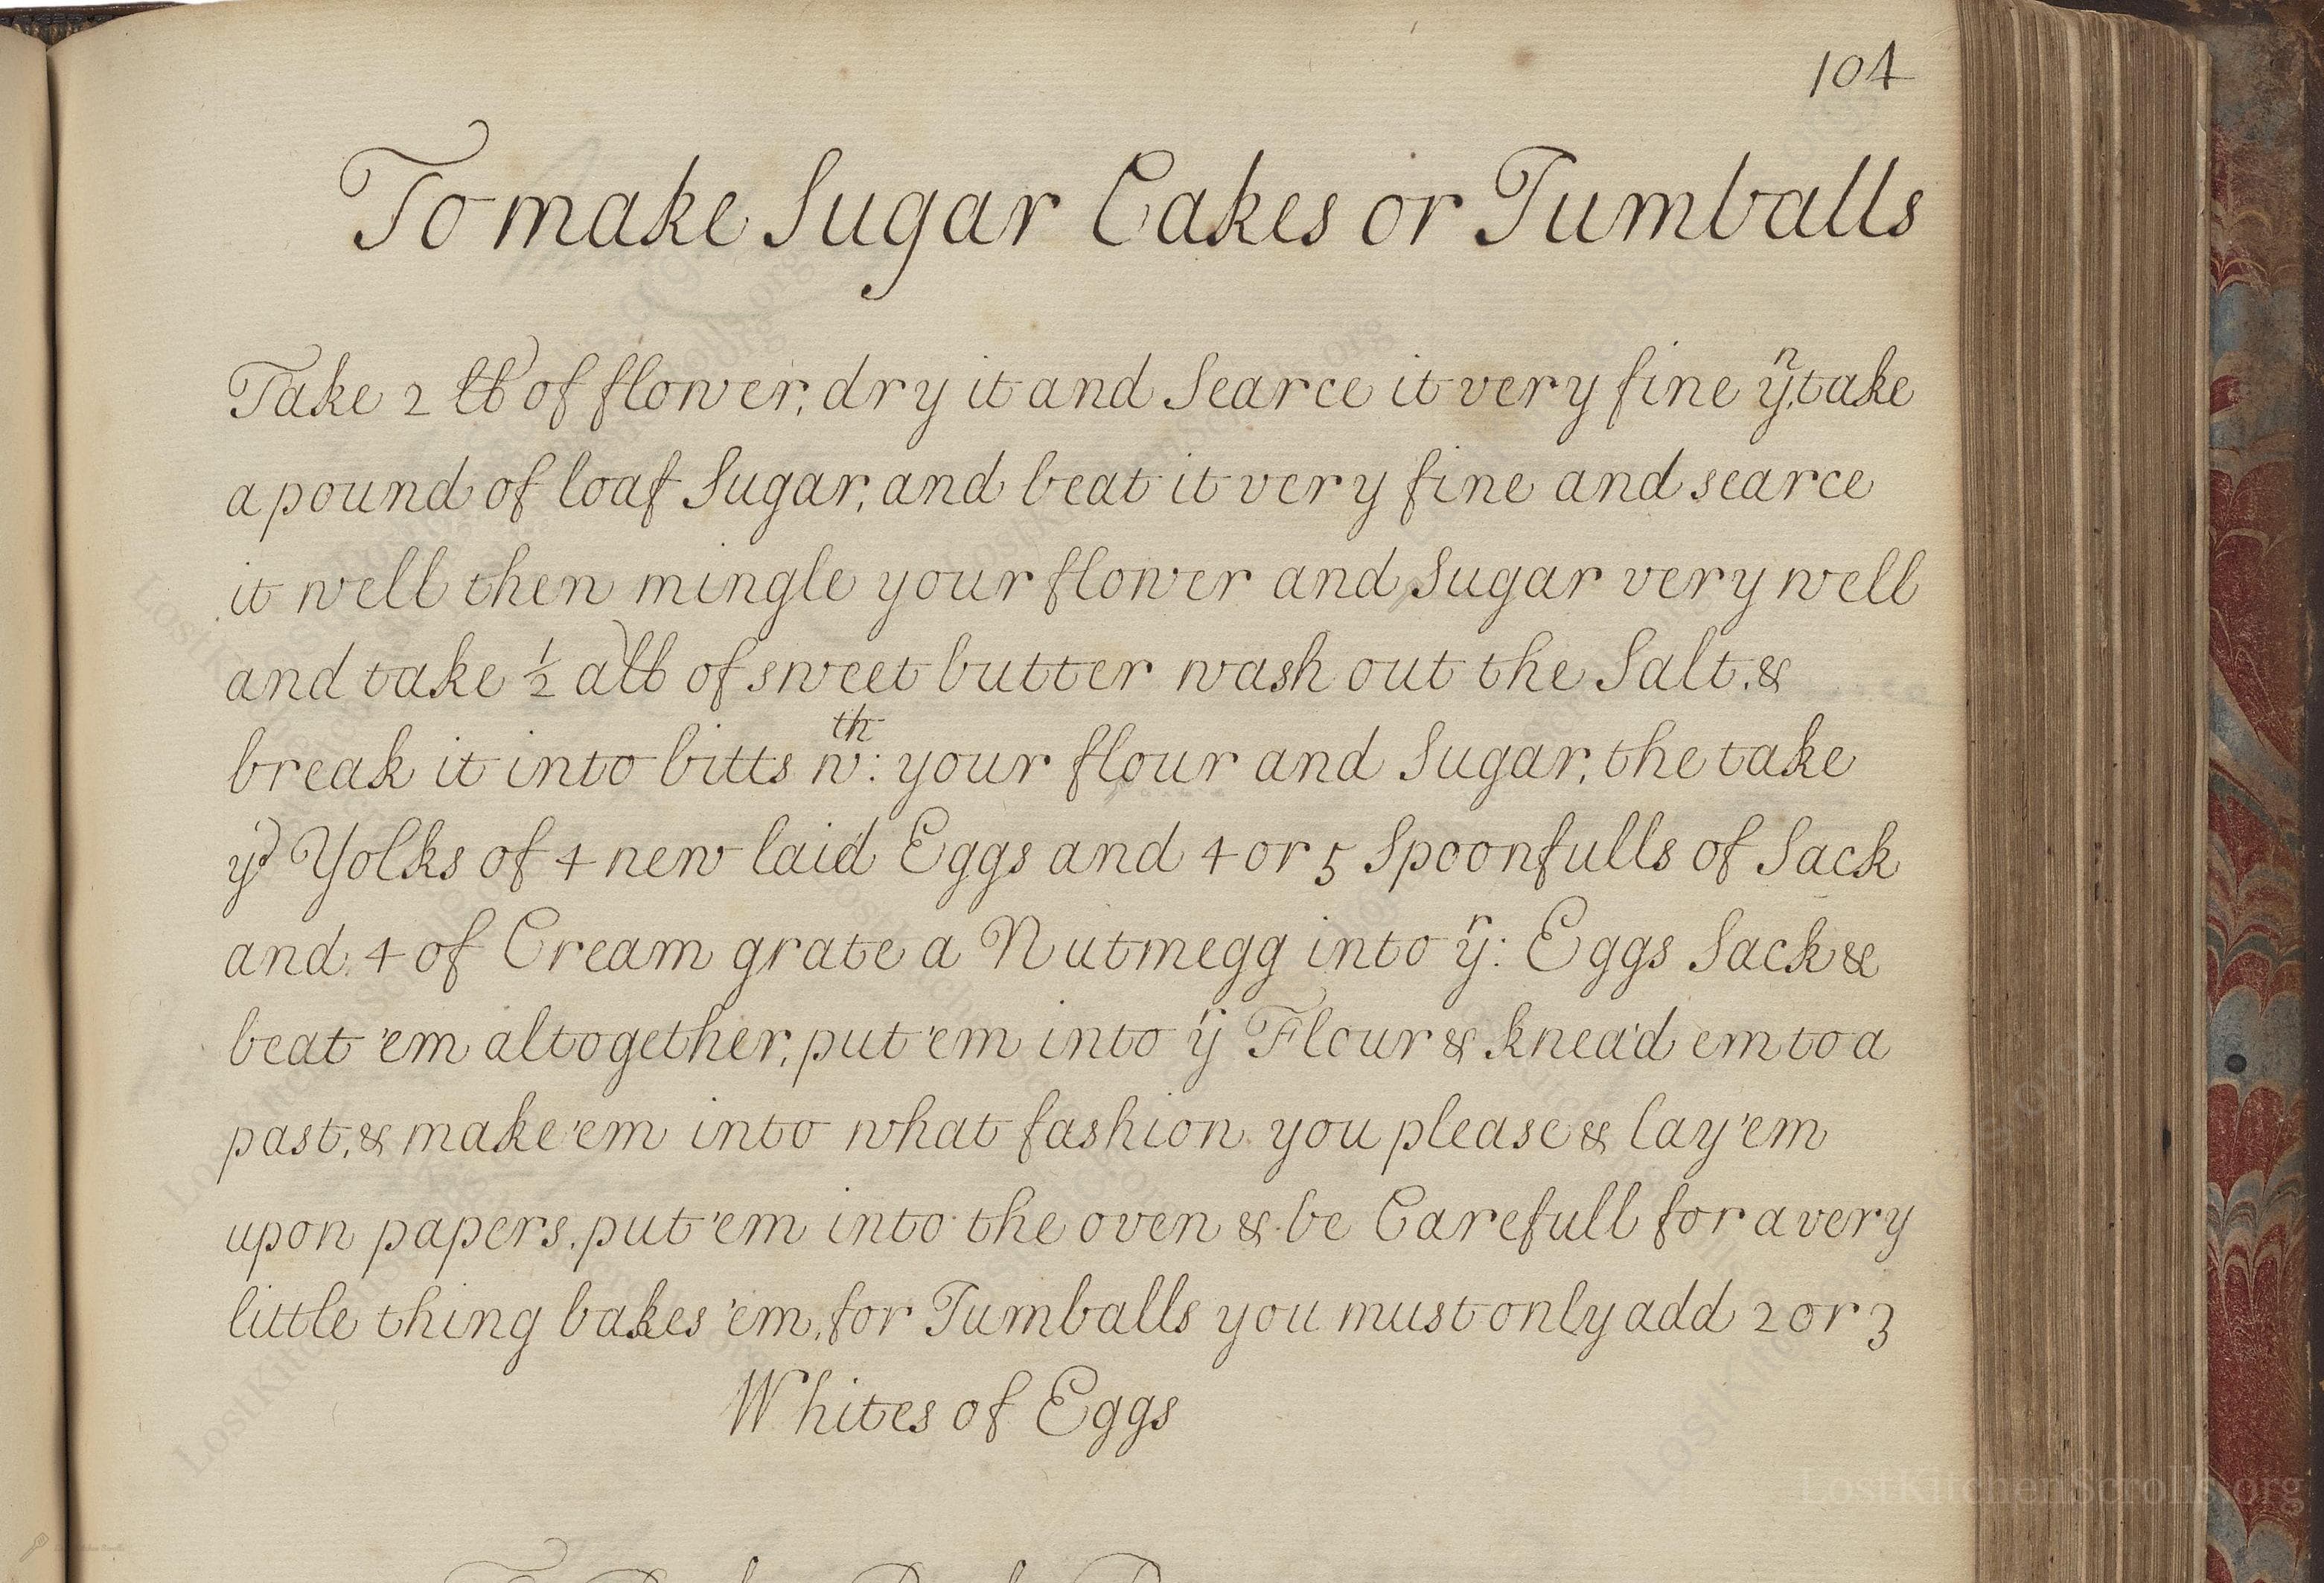 104
To make Sugar Cakes or Jumballs
Take 2 lb of flower, dry it and Searce it very fine yⁿ, take
a pound of loaf Sugar, and beat it very fine and searce
it well then mingle your flower and Sugar very well
and take ½ a lb of sweet butter wash out the Salt, &
break it into bitts wᵗʰ: your flour and Sugar, the take
yᵉ Yolks of 4 new laid Eggs and 4 or 5 Spoonfulls of Sack
and 4 of Cream grate a Nutmegg into yʳ: Eggs Sack &
beat 'em altogether, put 'em into yʳ Flour & knead em to a
past, & make 'em into what fashion you please & lay 'em
upon papers, put 'em into the oven & be Carefull for a very
little thing bakes 'em, for Jumballs you must only add 2 or 3
Whites of Eggs
LostKitchenScrolls.org